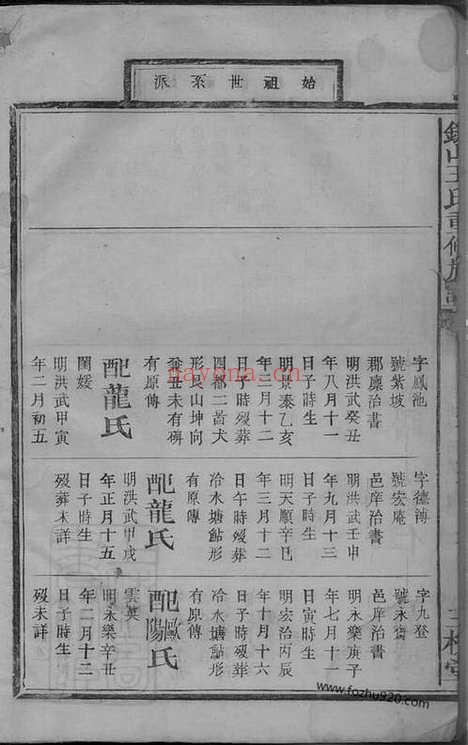 始祖世系派
王氏重修族譜
字鳳池
號紫坡
郡廩治書
明洪武癸丑
年八月十一
日子時生
明景泰乙亥
年二月十二
日子時歿葬
四都二啚犬
形艮山坤向
兼丑未有碑
有原傳
配龍氏
閨媛
明洪武甲寅
年二月初五
字德溥
號宏庵
邑庠治書
明洪武壬申
年九月十三
日子時生
明天順辛巳
年三月十二
日午時歿葬
冷水塘鮎形
有原傳
配龍氏
明洪武甲戌
年正月十五
日子時生
歿葬未詳
字九登
號永齋
邑庠治書
明永樂庚子
年七月十一
日寅時生
明宏治丙辰
年十月十六
日子時歿葬
冷水塘鮎形
有原傳
配歐陽氏
雲英
明永樂辛丑
年二月十二
日子時生
歿未詳
nayona.cn
www.fozhu920.com